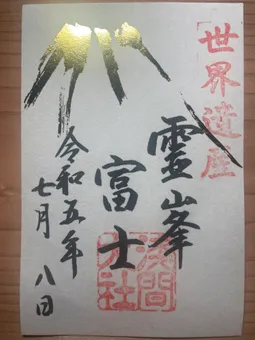 世界遺産
霊峯
富士
浅間大社
令和五年
七月八日